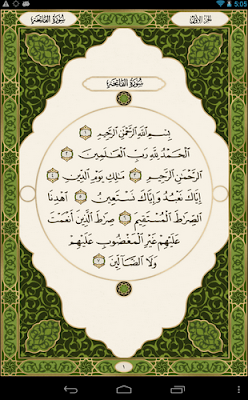 5:05
سُورَةُ الفَاتِحَةِ
الجُزْءُ الأَوَّلُ
سُورَةُ الفَاتِحَةِ
بِسْمِ ٱللَّهِ ٱلرَّحْمَٰنِ ٱلرَّحِيمِ ١
ٱلْحَمْدُ لِلَّهِ رَبِّ ٱلْعَٰلَمِينَ ٢
ٱلرَّحْمَٰنِ ٱلرَّحِيمِ ٣ مَٰلِكِ يَوْمِ ٱلدِّينِ ٤
إِيَّاكَ نَعْبُدُ وَإِيَّاكَ نَسْتَعِينُ ٥ ٱهْدِنَا
ٱلصِّرَٰطَ ٱلْمُسْتَقِيمَ ٦ صِرَٰطَ ٱلَّذِينَ أَنْعَمْتَ
عَلَيْهِمْ غَيْرِ ٱلْمَغْضُوبِ عَلَيْهِمْ
وَلَا ٱلضَّآلِّينَ ٧
١